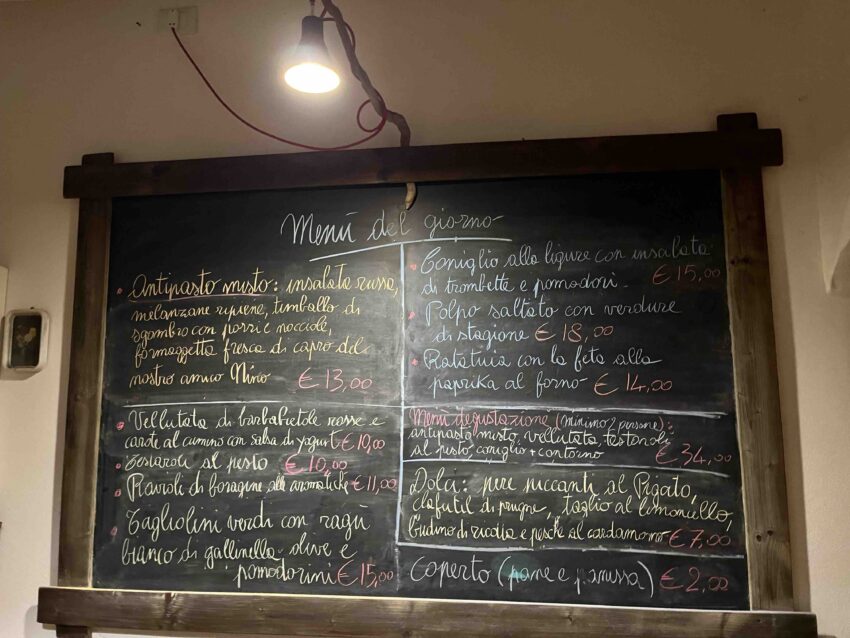 Menù del giorno
• Antipasto misto: insalata russa,
melanzane ripiene, timballo di
sgombro con porri e nocciole,
formaggetta fresca di capra del
nostro amico Nino € 13,00
• Vellutata di barbabietole rosse e
carote al cumino con salsa di yogurt € 10,00
• Testaroli al pesto € 10,00
• Ravioli di boragine alle aromatiche € 11,00
• Tagliolini verdi con ragù
bianco di gallinella olive e
pomodorini € 15,00
• Coniglio alla ligure con insalata
di trombette e pomodori. € 15,00
• Polpo saltato con verdure
di stagione € 18,00
• Ratatuia con la feta alla
paprika al forno € 14,00
Menù degustazione (minimo 2 persone):
antipasto misto, vellutata, testaroli
al pesto, coniglio + contorno € 34,00
Dolci: pere ripiccanti al Pigato,
clafutil di prugne, taglio al limoncello,
budino di ricotta e pesche al cardamomo € 7,00
Coperto (pane e panissa) € 2,00